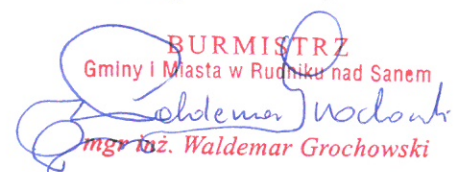 BURMISTRZ
Gminy i Miasta w Rudniku nad Sanem
Waldemar Grochowski
mgr inż. Waldemar Grochowski